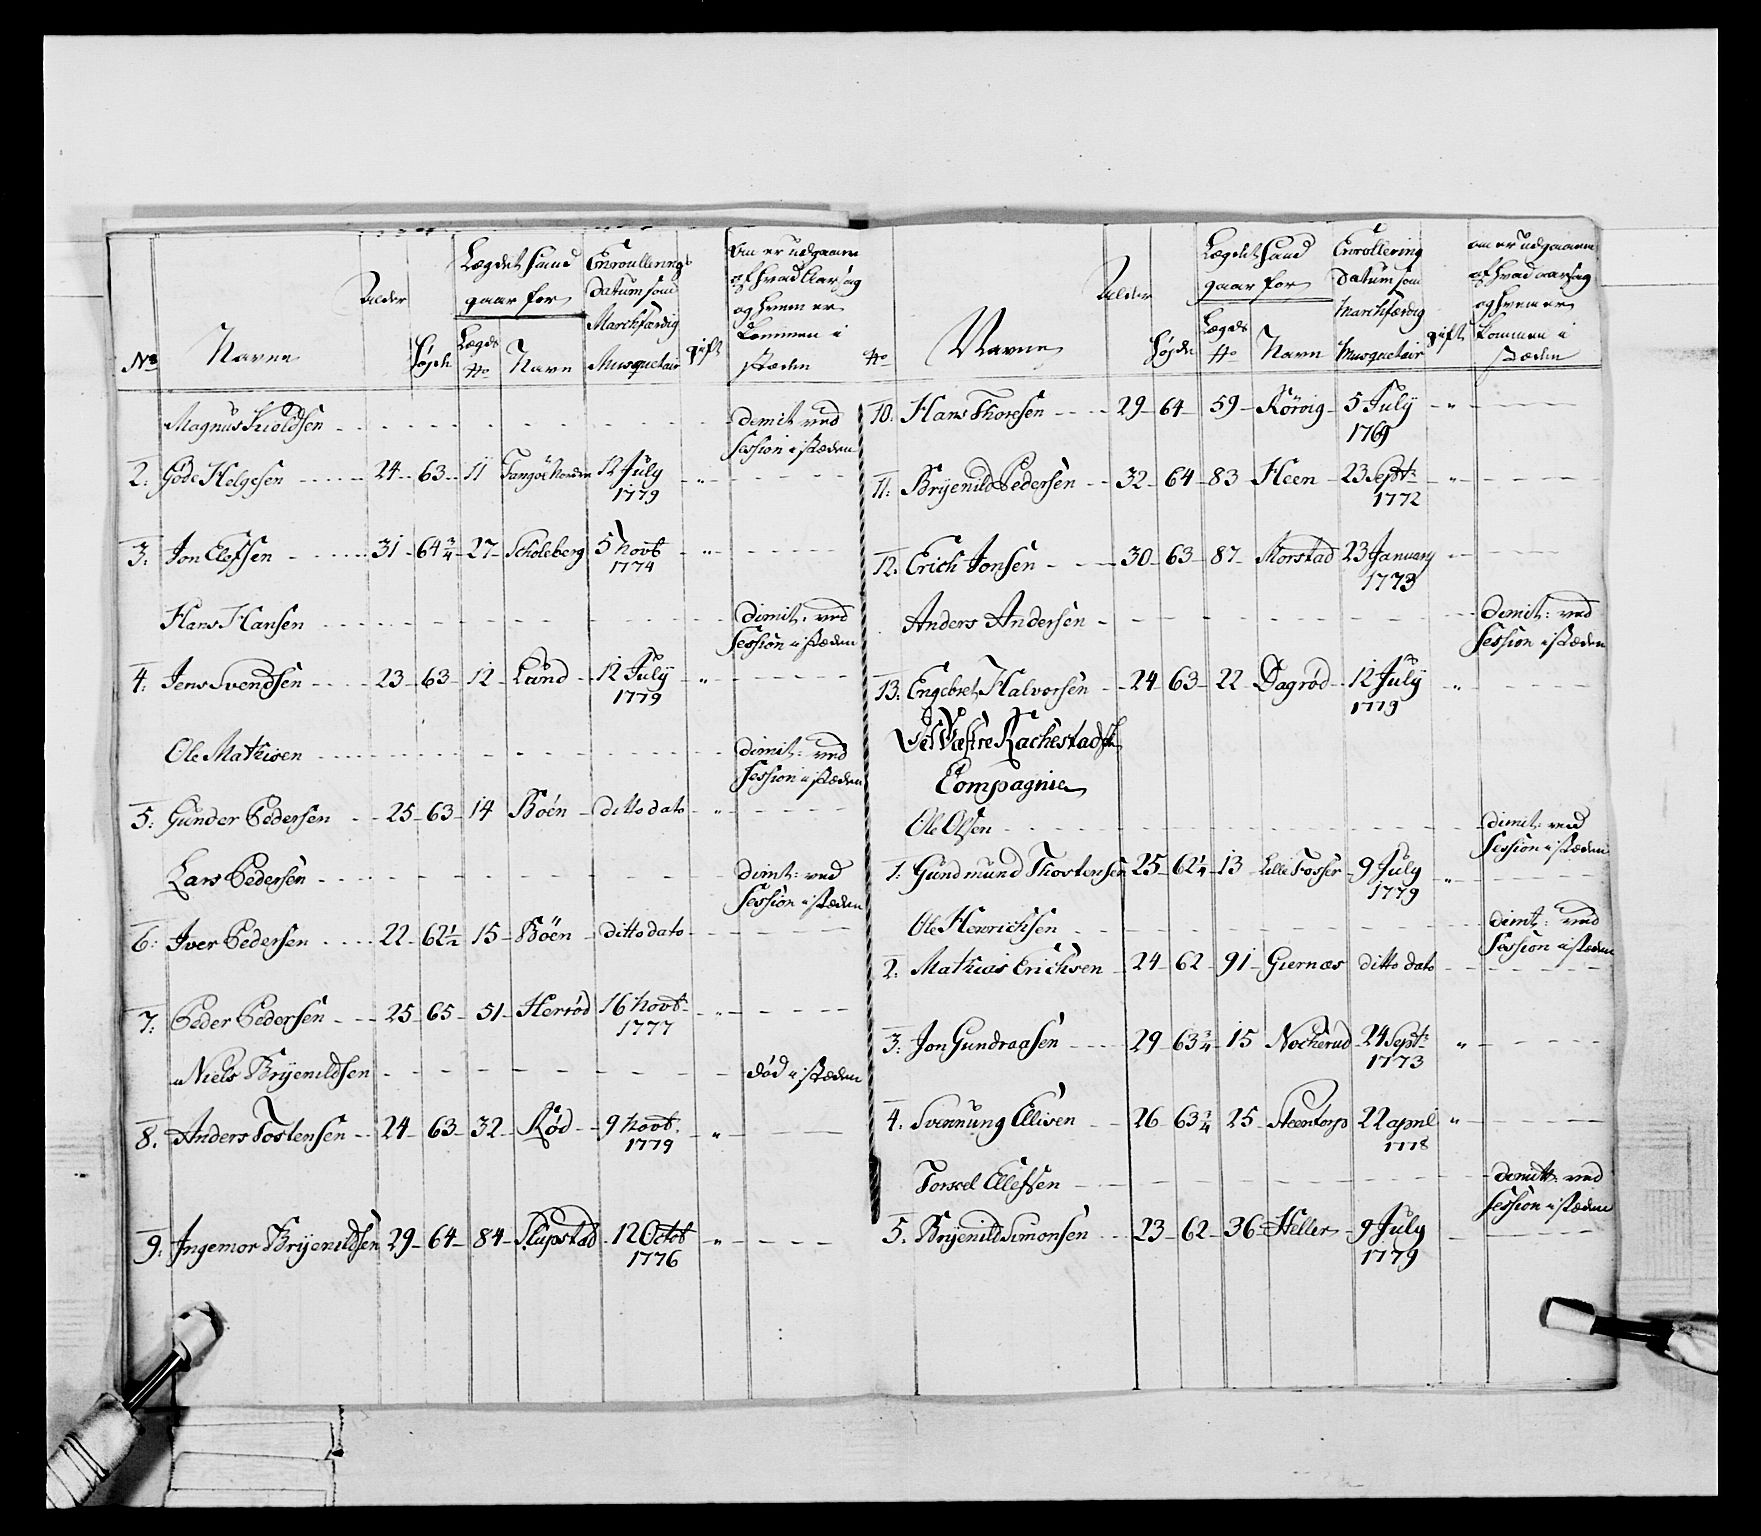 No Navne Alder Høyde Lægdet hand gaar for Lægds No Navn Enroullerings Datum som Marchfærdig Musquetair gift Om er udgaaen af hvad Aarsag og hvem er kommen i stæden
Magnus Kioldsen - - - demit ved Session i stæden
2. Gode Helgesen - 24 - 63 - 11 12 July 1779 - " -
3. Jon Elefsen - 31 - 64 3/4 - 27 - Scholeberg 5 Novb 1774 - " -
Hans Hansen - - - dimit. ved Session i stæden
4. Jens Svendsen - 23 - 63 - 12 - Lund - 12 July 1779 - " -
Ole Mathisen - - - dimit: ved Session i stæden
5. Gunder Pedersen - 25 - 63 - 14 - Böen - ditto dato - " -
Lars Pedersen - - - dimt: ved Session i stæden
6. Iver Pedersen - 22 - 62 1/2 - 15 - Böen - ditto dato -
7. Peder Pedersen - 25 - 65 - 51 - Herrød 16 Novb 1777 - " -
Niels Bryenildsen - - - død i stæden
8. Anders Tostensen - 24 - 63 - 32 - Rød - 9 Novb. 1779 - " -
9. Ingemor Bryenildsen 29 - 64 - 84 - Slupstad - 12 Octob 1776 - " -
No Navne Alder Høyde Lægdet hand gaar for Lægds No Navn Enrollering Datum som Marchfærdig Musquetair gift om er udgaaen af hvad aarsag og hvem er kommen i stæden
10. Hans Thoresen - 29 - 64 - 59 - Rörvig - 5 July 1769 - " -
11. Bryenild Pedersen - 32 - 64 - 83 - Heen - 23 Sept: 1772 - " -
12. Erich Jonsen - 30 - 63 - 87 - Storstad 23 January 1773 - " -
Anders Andersen - - - dimit: ved Session i stæden
13. Engebret Halvorsen - 24 - 63 - 22 - Dagrød - 12 July 1779 - " -
Ved Vestre Rachestadske
Compagnie
Ole Olsen - - - dimit: ved Session i stæden
1. Gundmund Thostensen 25 - 62 1/4 - 13 - Lille Fosser - 9 July 1779 - " -
Ole Henrichsen - - - dimt: ved Session i stæden
2. Mathias Erichsen - 24 - 62 - 91 - Giernæs ditto dato -
3. Jon Gundraasen - 29 - 63 3/4 - 15 Nocherud - 24 Sept: 1773 - " -
4. Svennung Ellisen - 26 - 63 3/4 - 25 - Steentorp 22 april 1778 - " -
Torkel Ellefsen - - - demitt: ved Session i stæden
5. Bryenild Simonsen - 23 - 62 - 36 - Heller - 9 July 1779 -